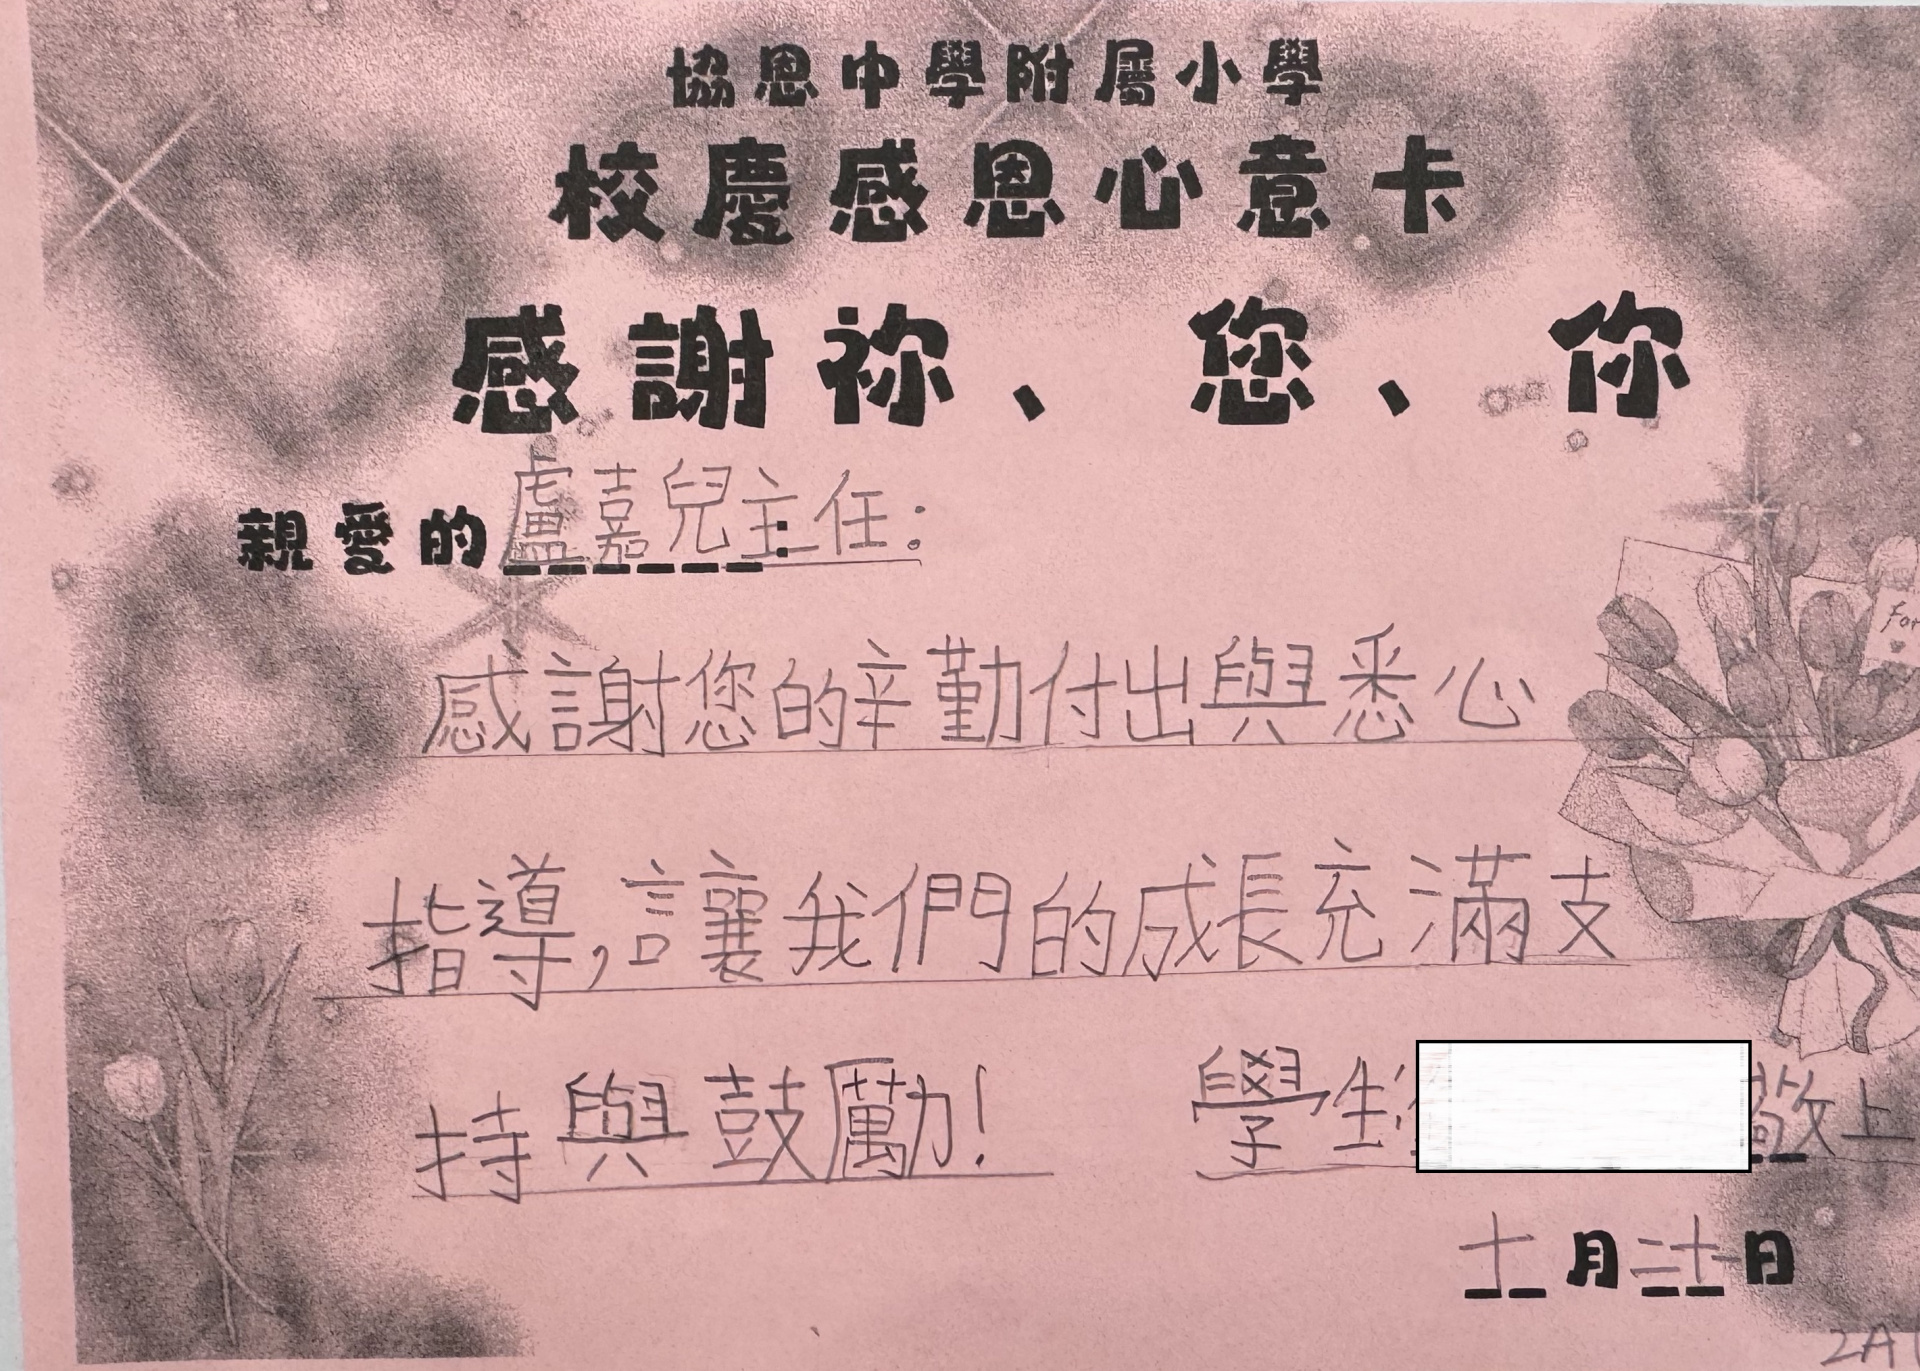 協恩中學附屬小學
校慶感恩心意卡
感謝祢、您、你
親愛的盧嘉兒主任：
感謝您的辛勤付出與悉心
指導，讓我們的成長充滿支
持與鼓勵！
學生 敬上
十月二十日
For
2A